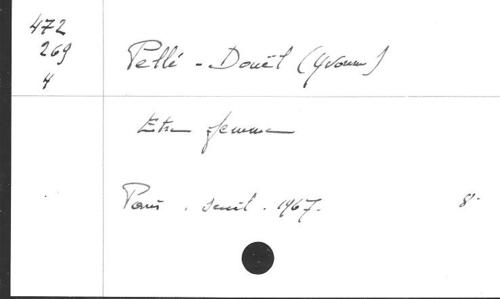 472
269
4
Pellé - Douël (Yvonne)
Etre femme
Paris. Seuil. 1967. 8°